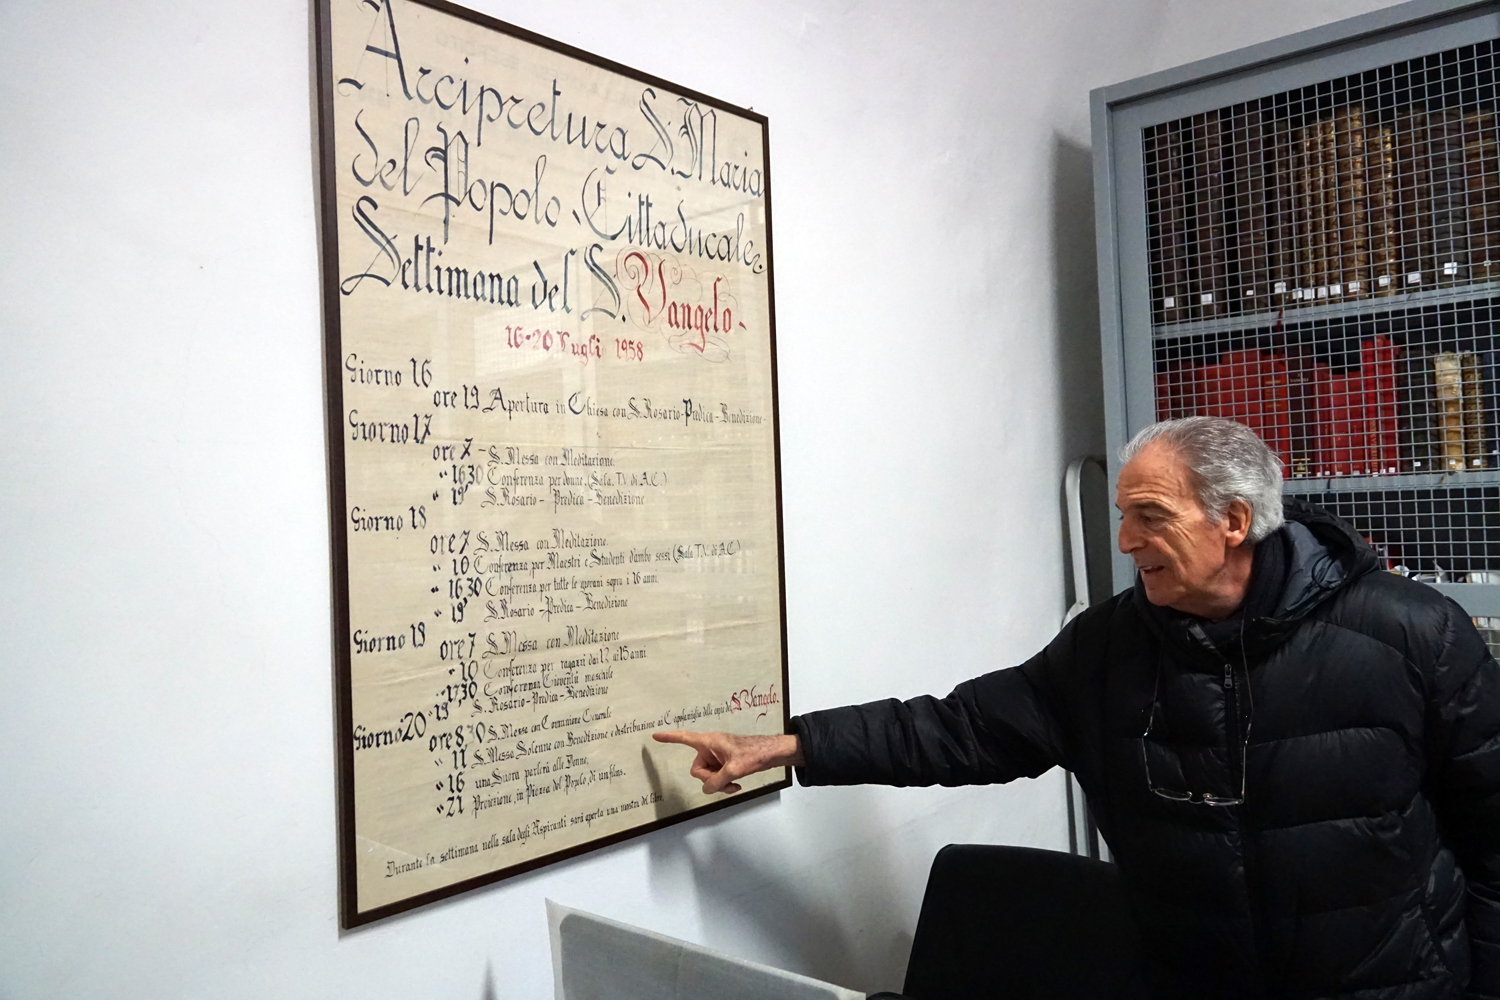 Arcipretura S. Maria
del Popolo - Cittaducale
Settimana del S. Vangelo -
16-20 Lugli 1958
Giorno 16
ore 19 Apertura in Chiesa con S. Rosario - Predica - Benedizione -
Giorno 17
ore 7 - S. Messa con Meditazione.
" 16,30 Conferenza per donne. (Sala T.V. di A.C.)
" 19' S. Rosario - Predica - Benedizione
Giorno 18
ore 7 S. Messa con Meditazione.
" 10 Conferenza per Maestri e Studenti d'ambo sessi (Sala T.V. di A.C.)
" 16,30 Conferenza per tutte le giovani sopra i 16 anni.
" 19' S. Rosario - Predica - Benedizione
Giorno 19
ore 7 S. Messa con Meditazione
" 10 Conferenza per ragazzi dai 12 ai 15 anni.
" 17,30 Conferenza Gioventù maschile
" 19' S. Rosario - Predica - Benedizione
Giorno 20
ore 8,30 S. Messa con Comunione Generale
" 11 S. Messa Solenne con Benedizione e distribuzione ai Capofamiglia delle copie del S. Vangelo.
" 16 una Suora parlerà alle Donne.
" 21 Proiezione, in Piazza del Popolo, di un films.
Durante la settimana nella sala degli Aspiranti sarà aperta una mostra del libro.